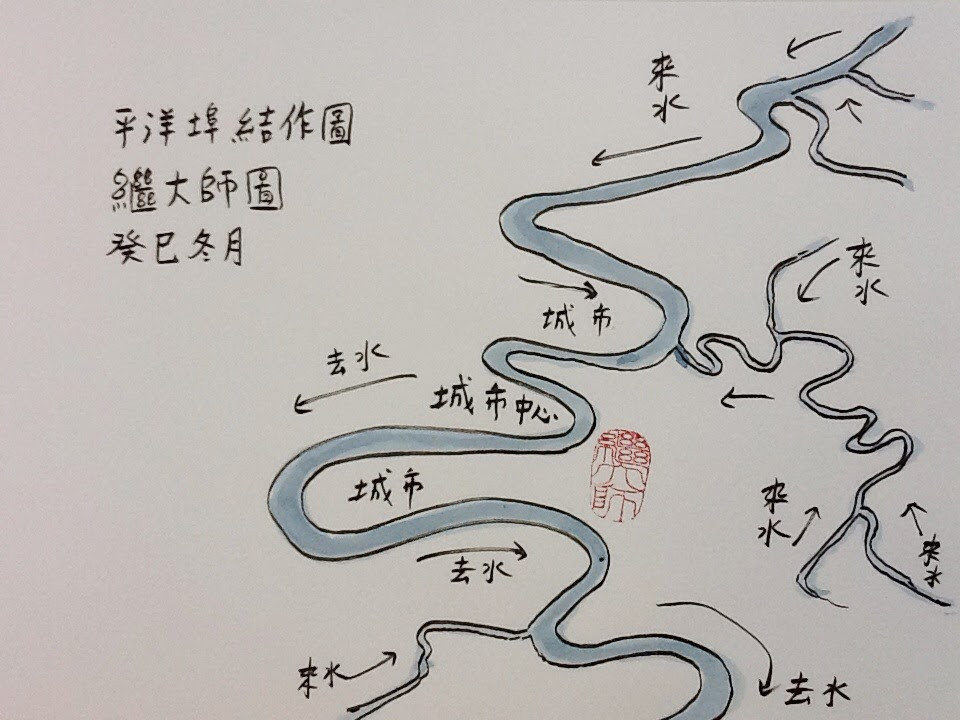 平洋埠結作圖
繼大師圖
癸巳冬月
來水
來水
城市
去水
城市中心
城市
繼大師
來水
來水
去水
來水
去水